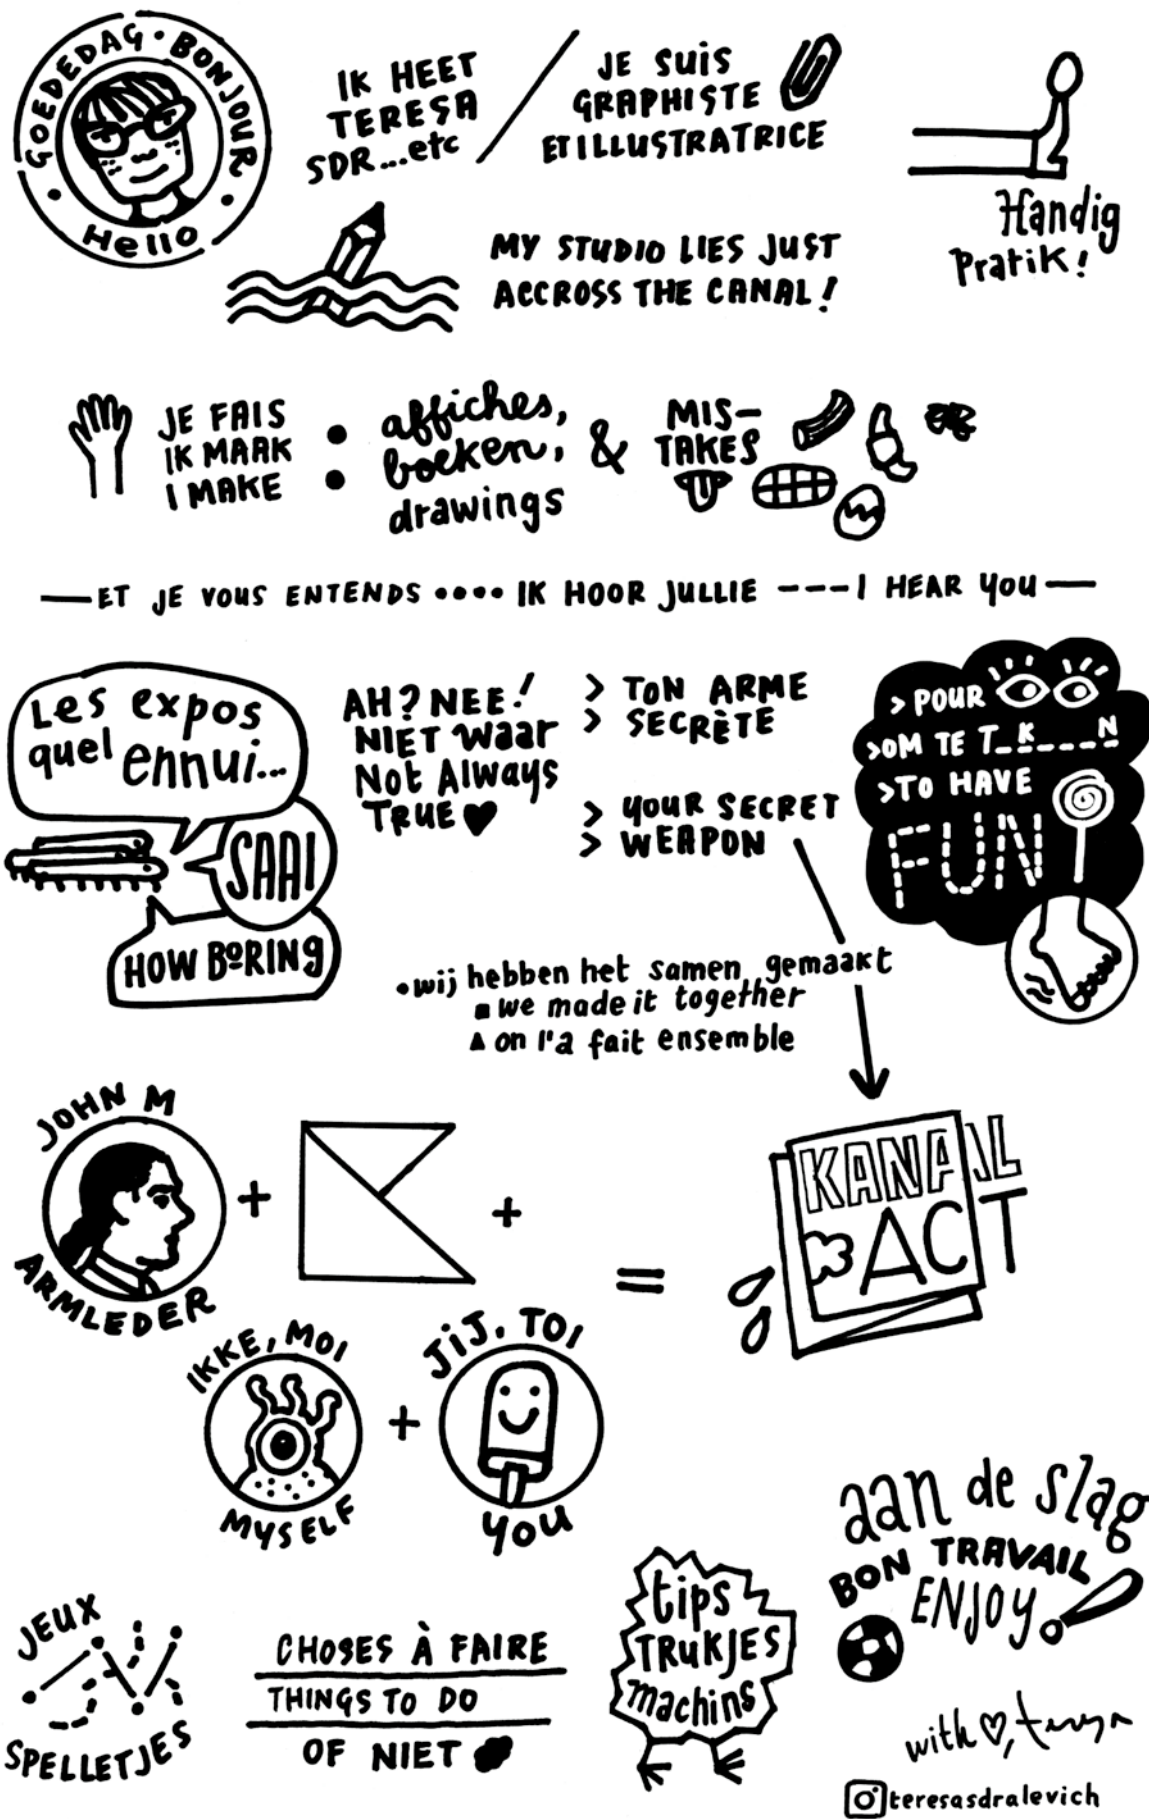 GOEDEDAG • BONJOUR •
Hello
IK HEET
TERESA
SDR...etc
JE SUIS
GRAPHISTE
ET ILLUSTRATRICE
Handig
Pratik!
MY STUDIO LIES JUST
ACCROSS THE CANAL!
JE FAIS
IK MAAK
I MAKE
:
affiches,
boeken,
drawings
&
MIS-
TAKES
— ET JE VOUS ENTENDS •••• IK HOOR JULLIE --- I HEAR YOU —
Les expos
quel ennui...
SAAI
HOW BORING
AH? NEE!
NIET waar
Not Always
TRUE ♥
> TON ARME
> SECRÈTE
> YOUR SECRET
> WEAPON
> POUR
> OM TE T_K____N
> TO HAVE
FUN
• wij hebben het samen gemaakt
▪ we made it together
▲ on l'a fait ensemble
JOHN M
ARMLEDER
+
+
IKKE, MOI
MYSELF
+
JIJ, TOI
YOU
=
KANAL
ACT
JEUX
SPELLETJES
CHOSES À FAIRE
THINGS TO DO
OF NIET
tips
TRUKJES
machins
aan de slag
BON TRAVAIL
ENJOY!
with ♡, teresa
teresasdralevich